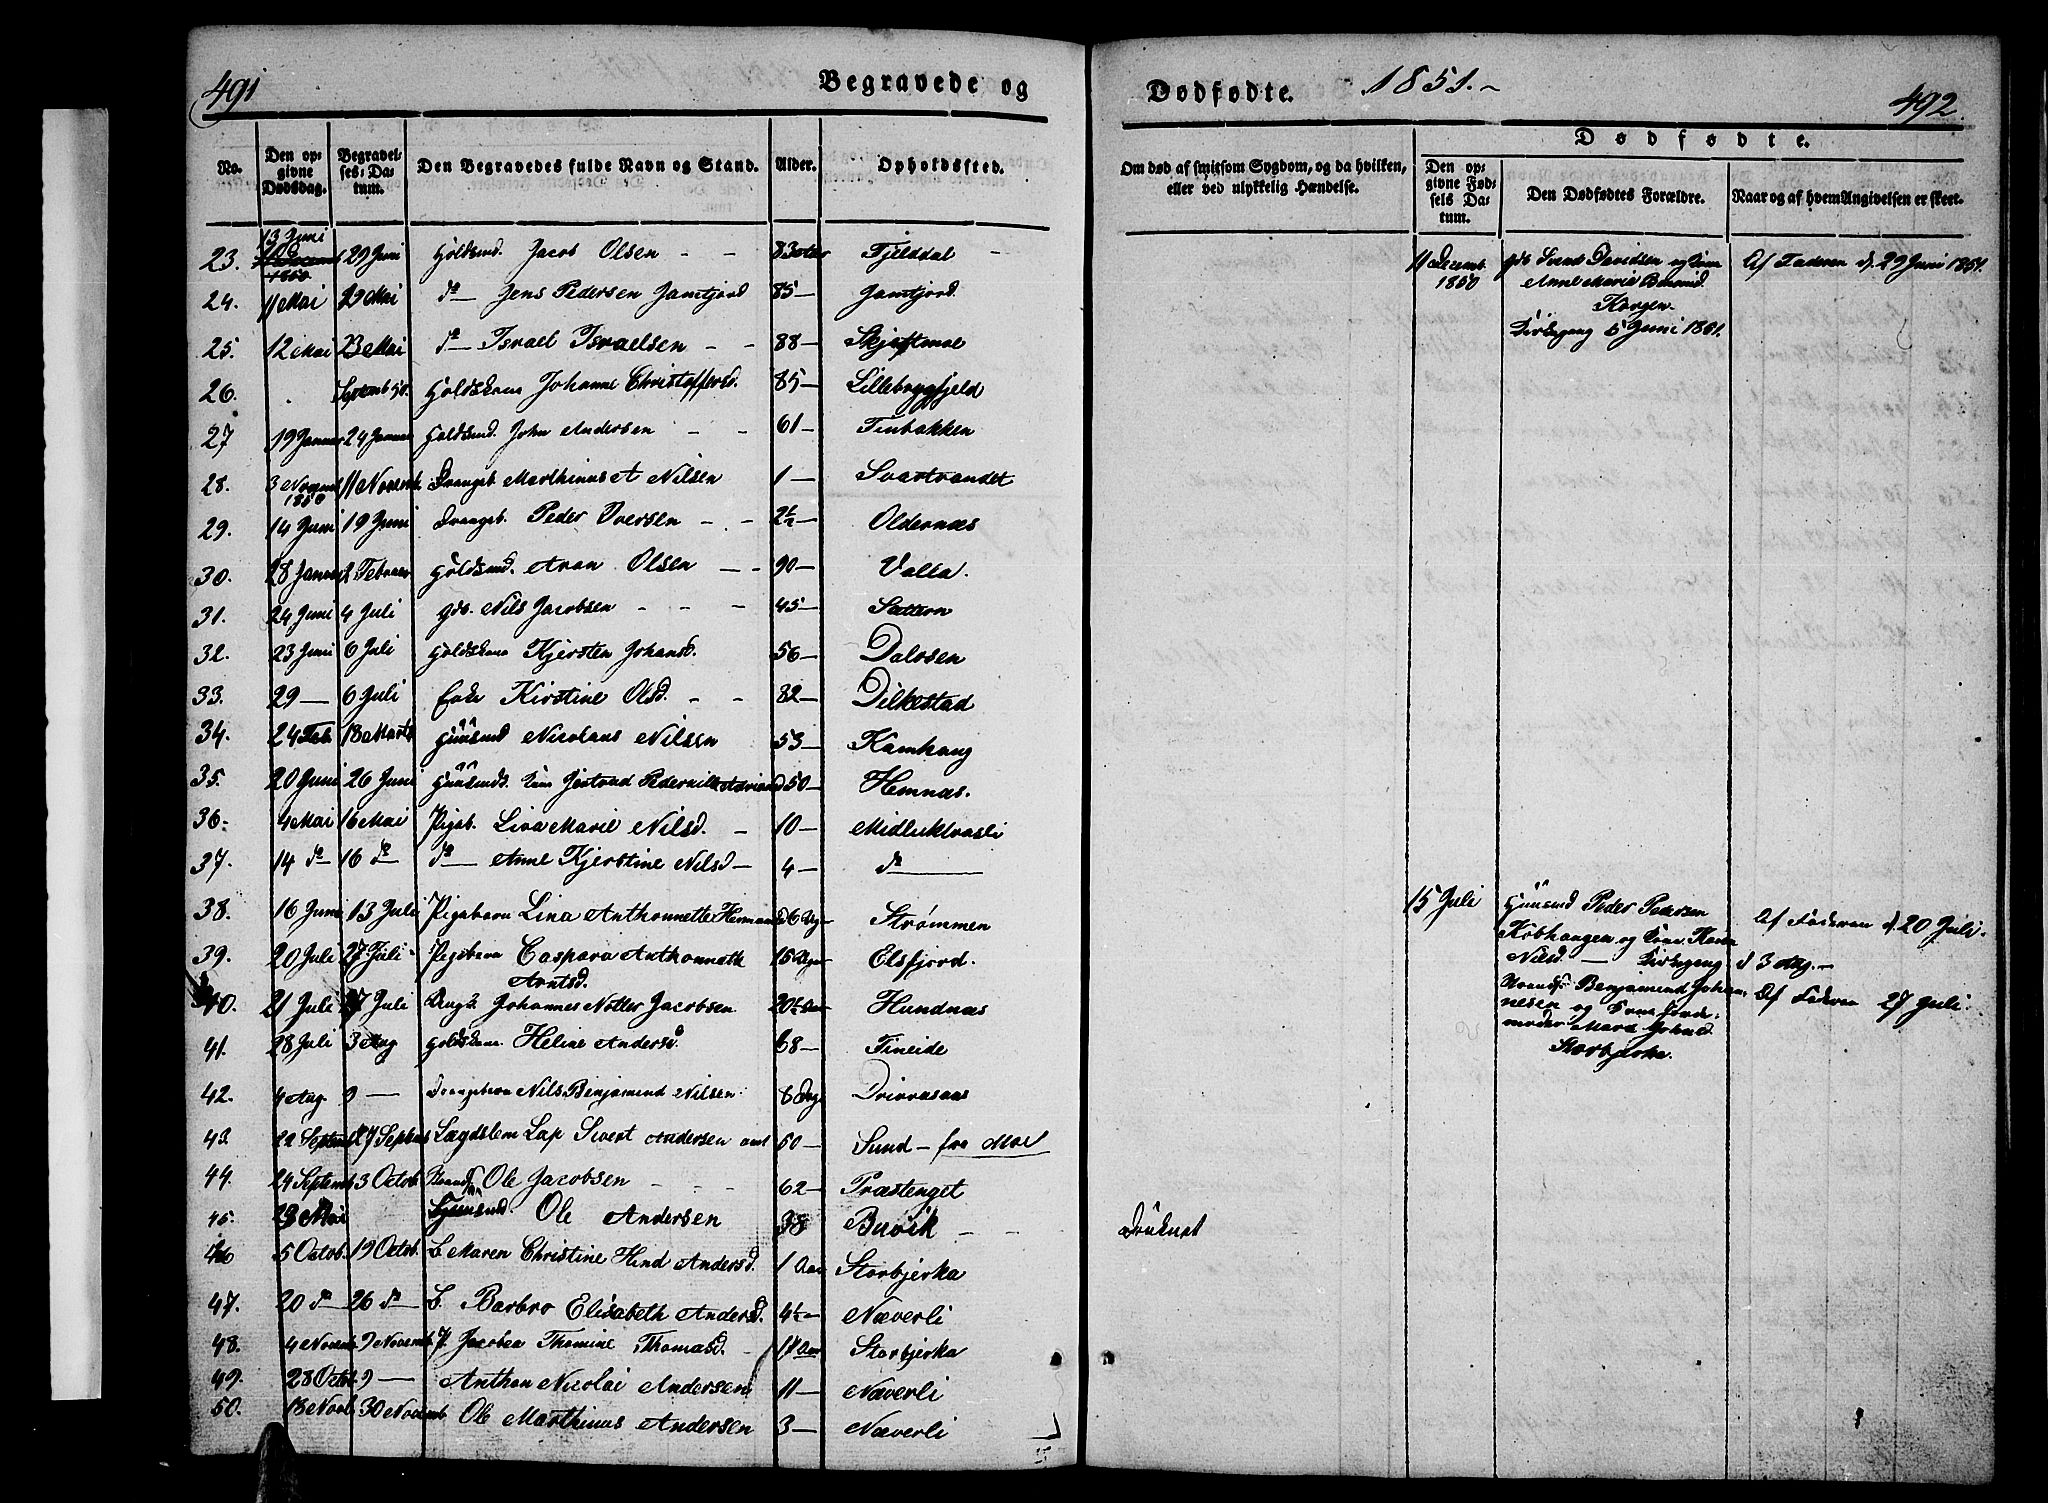 491
Begravede og
No.
Den op-
givne
Dødsdag.
Begravel-
ses-Da-
tum.
Den Begravedes fulde Navn og Stand.
Alder.
Opholdssted.
23. 13 Juni 29 Juni Jacob Olsen - - 83 Fjelddal
1850
24. 11 Mai 29 Mai do Jens Pedersen Jamtjord 85- Jamtjord
25. 12 Mai 23 Mai do Israel Israelsen - - 88- Skjeftmoe
26. Johanne Christoffersd. 85- Lillebryggfjeld
27 19 Januar 24 Januar John Andersen - - 61- Finbakken
28. 3 Novemb 11 Novemb. Drangeb Marthinus A Nilsen 1- Svartvandet
1850
29. 14 Juni 19 Juni Drangeb. Peder Iversen - - 2½- Oldernæs
30. 28 Januar 2 Februar Aron Olsen - - 90- Valla.
31. 24 Juni 4 Juli Nils Jacobsen - - - 45- Sættern
32. 23 Juni 6 Juli Kjersten Johansd. 56- Dalosen
33. 29 - 6 Juli Enke Kirstine Olsd. - - 82- Dilkestad
34. 24 Feb. 18 Marts Huusmd Nicolaus Nilsen 53- Kamhaug
35. 20 Juni 26 Juni 50- Hemnæs.
36- 4 Mai 16 Mai Pigeb. Lina Marie Nilsd. - 10- Midluktvasli
37. 14 do 16 do do Anne Kjerstine Nilsd - 4- do
38. 16 Juni 13 Juli Pigebarn Lina Anthonnette 6 Dage Strømmen
39. 20 Juli 27 Juli Pigebarn Caspara Anthonnette 15 Dage Elsfjord.
Arntsd.
40. 21 Juli 27 Juli Johannes Nötler Jacobsen Hundnæs
41. 28 Juli 3 Aug Heline Andersd. 68- Fineide
42. 4 Aug. 9 - Drangebarn Nils Benjamend Nilsen 6 Dage
43. 22 Septemb 27 Septemb Lægdslem Lap Sivert Andersen 50- Sund - fra Moe
44. 24 Septemb 3 Octob. Ole Jacobsen - - - 62- Præstenget
45. 23 Mai Ole Andersen 38 Buvik - -
46 5 Octob. 19 Octob. B. Maren Christine Hind Andersd. 1 Aar Storbjerka
47. 20 do 26 do B. Barbro Elisabeth Andersd. 4½- Næverli
48. 4 Novemb. 9 Novemb. P. Jacobea Thomine Thomasd. - Storbjerka
49. 28 Octob. 9 - Anthon Nicolai Andersen 11- Næverli
50. 18 Novb. 30 Novemb Ole Marthinus Andersen 3- Næverli
Dødfødte. 1851.-
492.
Om død af smitsom Sygdom, og da hvilken,
eller ved ulykkelig Hændelse.
Dødfødte.
Den op-
givne Fød-
sels Da-
tum.
Den Dødfødtes Forældre.
Naar og af hvem Angivelsen er skeet.
11 Decemb. Svend Davidsen og Kone Af Faderen d. 29 Juni 1851.
1850 Anne Marie
Korgen.
5 Juni 1851.
15 Juli Huusmd Peder Pedersen Af Faderen d. 20 Juli.
Kobhaugen og Kone Karen
Nilsd. - d 3 Aug. -
Benjamend Johan- Af Faderen 27 Juli.
nesen og Kone Jorde-
moder
Storbjerka.
Druknet